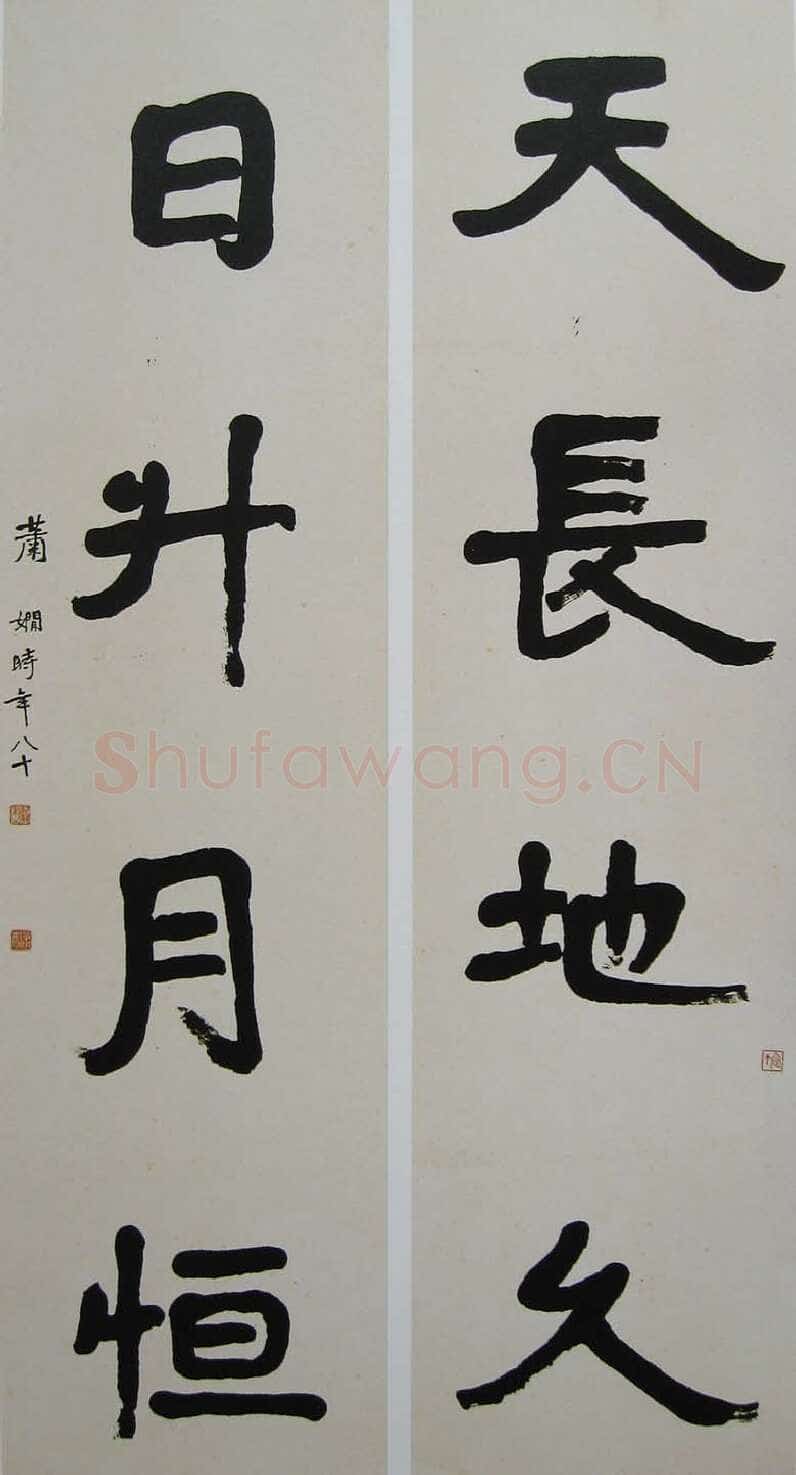 天長地久
日升月恒
蕭嫻時年八十
Shufawang.CN